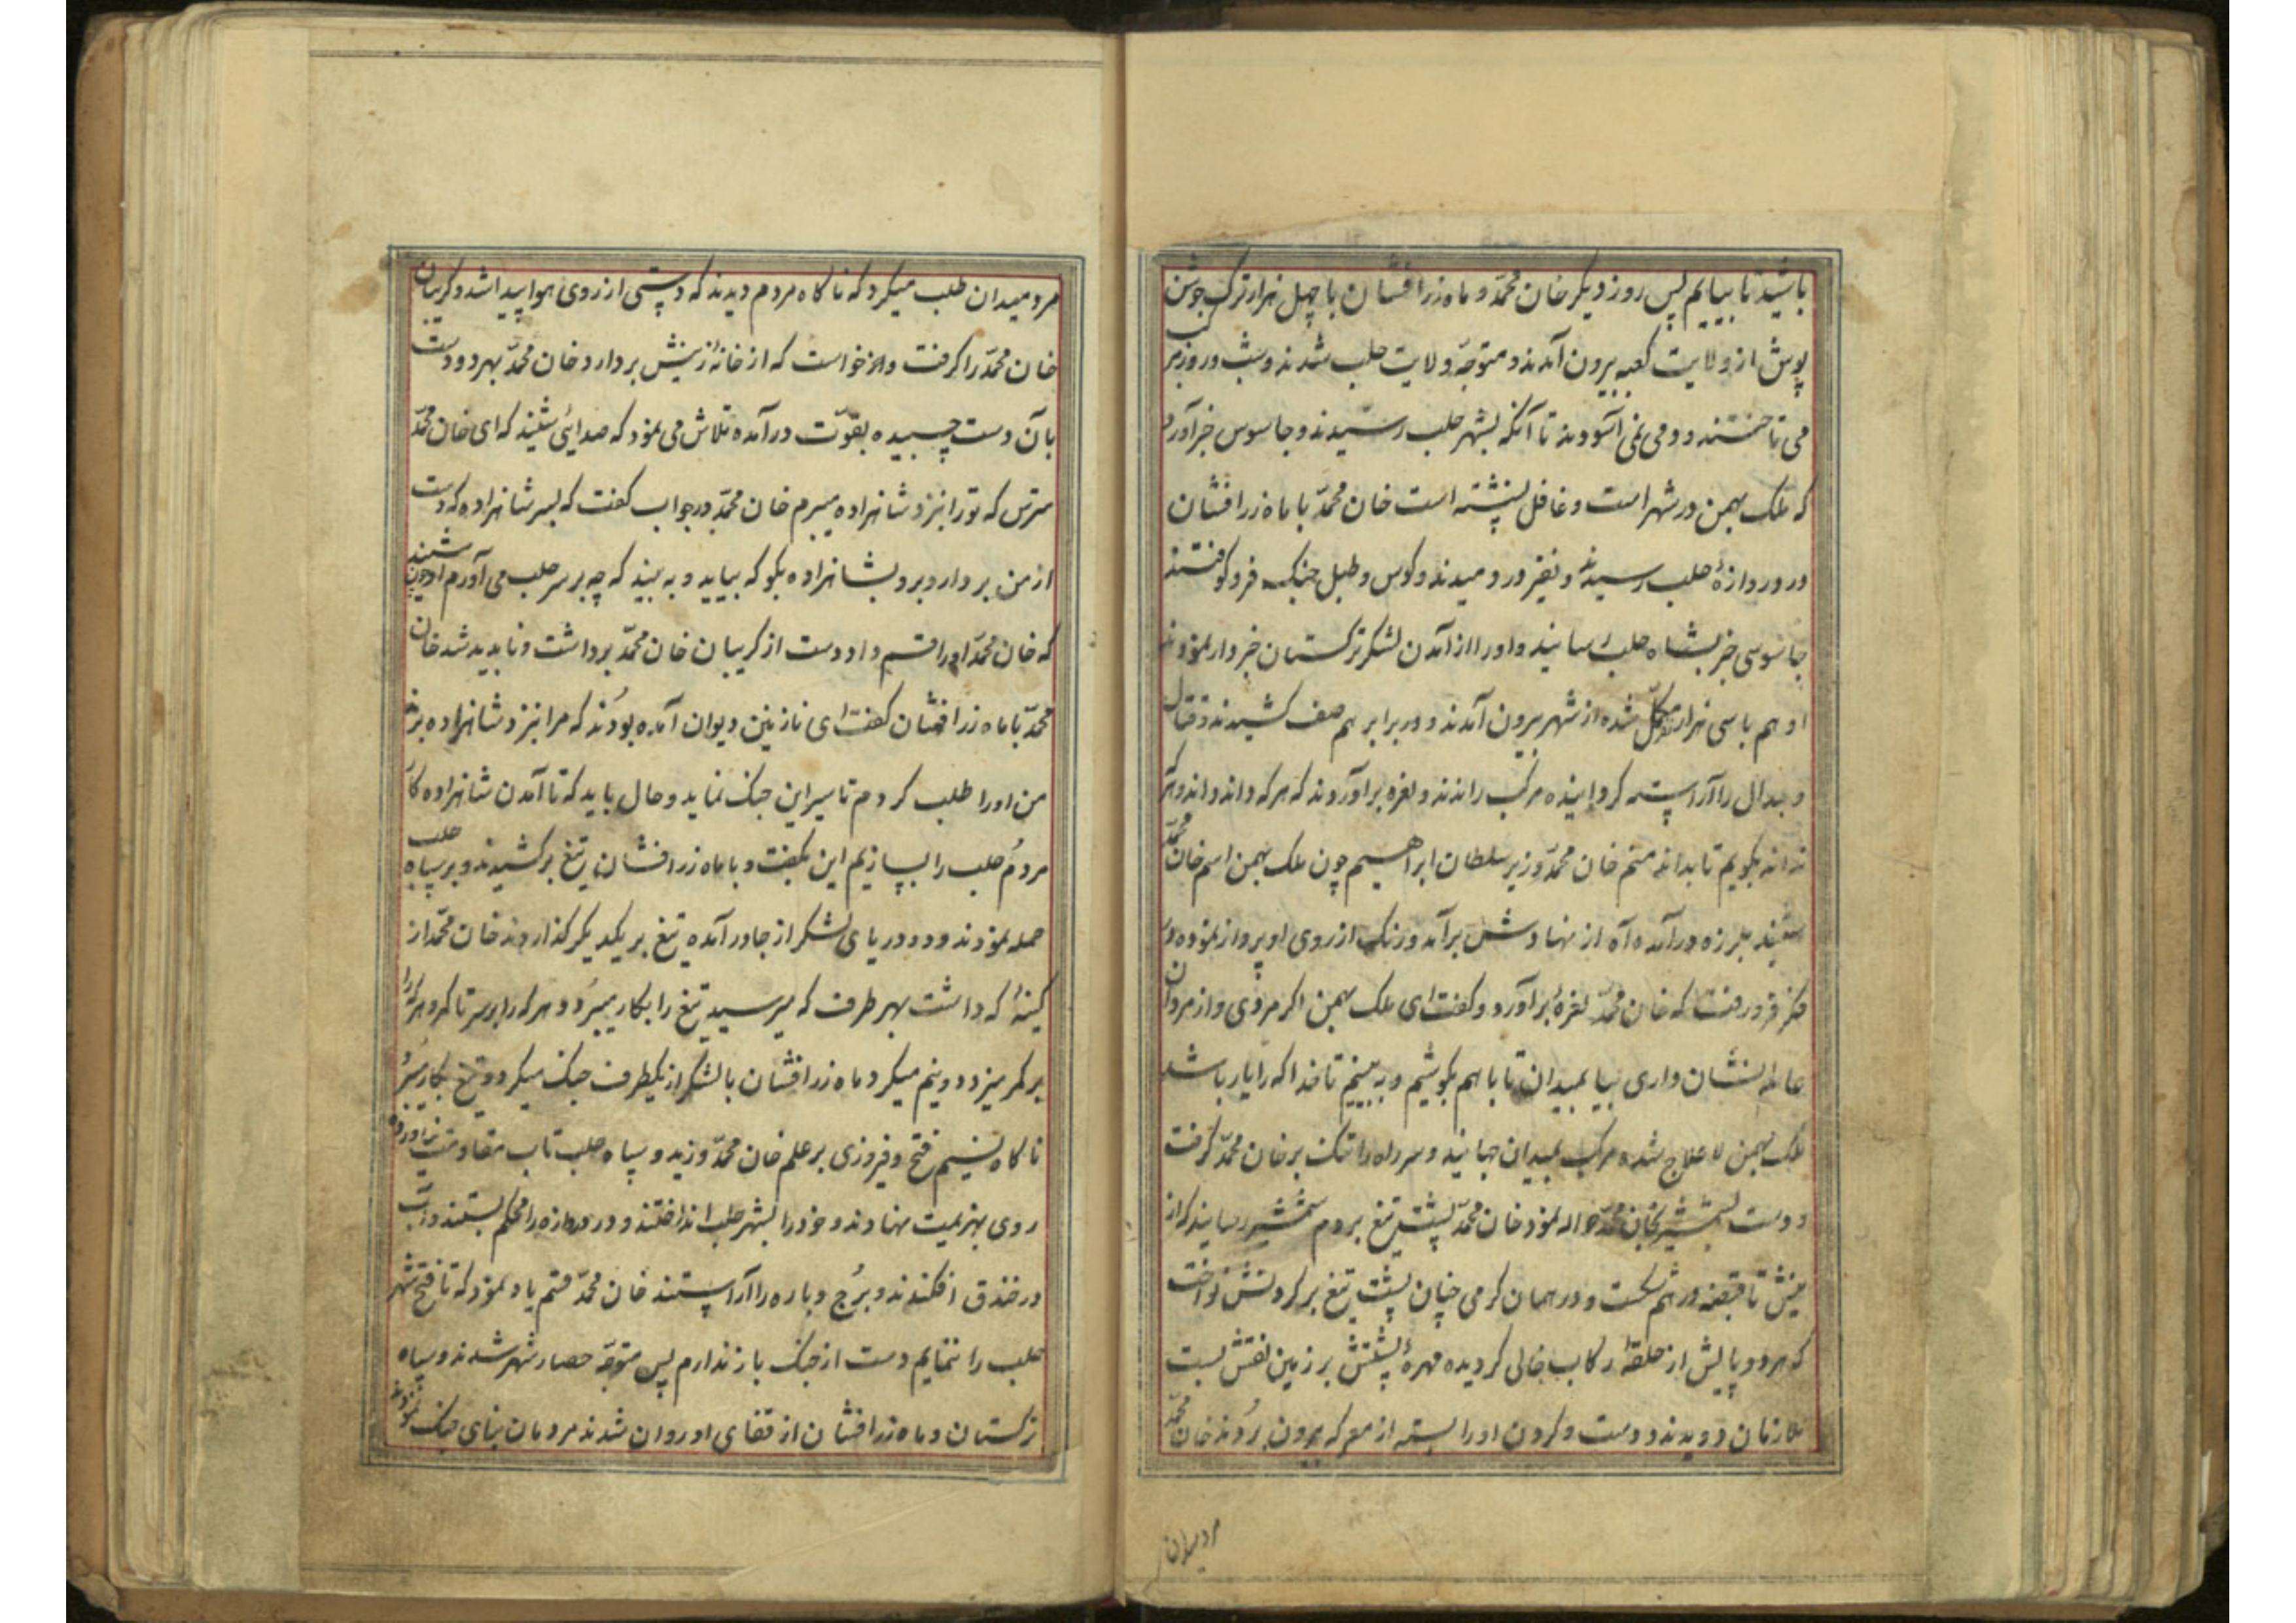 باشید تا بیایم پس روز دیگر خان محمّد و ماه زرافشان با چهل هزار ترک جوشن
پوش از ولایت کعبه بیرون آمدند و متوجّه ولایت حلب شدند و شب و روز مرکب
می تاختند و دمی نمی آسودند تا آنکه بشهر حلب رسیدند و جاسوس خبر آورد
که ملک بهمن در شهر است و غافل نشسته است خان محمّد با ماه زرافشان
در دروازهٔ حلب رسیدند و نفیر در دمیدند و کوس و طبل جنک فرو کوفتند
جاسوسی خبر بشاه حلب رسانید و او را از آمدن لشکر ترکستان خبردار نمودند
او هم با سی هزار مکمّل شده از شهر بیرون آمدند و در برابر هم صف کشیدند و قتال
و جدال را آراسته کردانیده مرکب راندند و نعره برآوردند که هر که داند داند و هر که
نداند بگویم تا بداند منم خان محمّد وزیر سلطان ابراهیم چون ملک بهمن اسم خان محمّد
شنید بلرزه درآمده آه از نهادش برآمد و رنک از روی او پرواز نموده در
فکر فرو رفت که خان محمّد نعرهٔ برآورد و کفت ای ملک بهمن اکر مردی و از مردان
عالم نشان داری بیا بمیدان تا با هم بکوشیم و ببینیم تا خدا که را یار باشد
ملک بهمن لاعلاج شده مرکب بمیدان جهانید و سر راه را تنک بر خان محمّد کرفت
و دست بشمشیر بخان محمّد حواله نمود خان محمّد پشت تیغ بر دم شمشیر رسانید که از
نیش تا قبضه در هم شکست و در همان کرمی چنان پشت تیغ بر کردنش نواخت
که هر دو پایش از حلقهٔ رکاب خالی کردیده مهرهٔ پشتش بر زمین نقش بست
ملازمان دویدند و دست و کردن او را بسته از معرکه بیرون بردند خان محمّد
مرد میدان
مرد میدان طلب میکرد که ناکاه مردم دیدند که دستی از روی هوا پیدا شد و کریبان
خان محمّد را کرفت و خواست که از خانهٔ زینش بردارد خان محمّد بهر دو دست
بآن دست چسبیده بقوّت درآمده تلاش می نمود که صدائی شنید که ای خان محمّد
مترس که تو را بنزد شاهزاده میبرم خان محمّد در جواب کفت که بسر شاهزاده که دست
از من بردار و برو بشاهزاده بکو که بیاید و به بیند که چه بر سر حلب می آورم او چون شنید
که خان محمّد او را قسم داد دست از کریبان خان محمّد برداشت و ناپدید شد خان
محمّد با ماه زرافشان کفت ای نازنین دیوان آمده بودند که مرا بنزد شاهزاده برند
من او را طلب کردم تا سیر این جنک نماید و حال باید که تا آمدن شاهزاده کار
مردم حلب را بسازیم این بکفت و با ماه زرافشان تیغ برکشیدند و بر سپاه حلب
حمله نمودند و دو دریای لشکر از جا درآمده تیغ بر یکدیکر کذاردند خان محمّد از
کینهٔ که داشت بهر طرف که میرسید تیغ را بکار میبرد و هر که را بر سر تا کمر و هر که را
بر کمر میزد دو نیم میکرد ماه زرافشان با لشکر از یکطرف جنک میکرد و تیغ بکار میبرد
ناکاه نسیم فتح و فیروزی بر علم خان محمّد وزید و سپاه حلب تاب مقاومت نیاورده
روی بهزیمت نهادند و خود را بشهر حلب انداختند و در دروازه را محکم بستند و آب
در خندق افکندند و برج و باره را آراستند خان محمّد قسم یاد نمود که تا فتح شهر
حلب را ننمایم دست از جنک باز ندارم پس متوجّه حصار شهر شدند و سپاه
ترکستان و ماه زرافشان از قفای او روان شدند مردمان بنای جنک نمودند